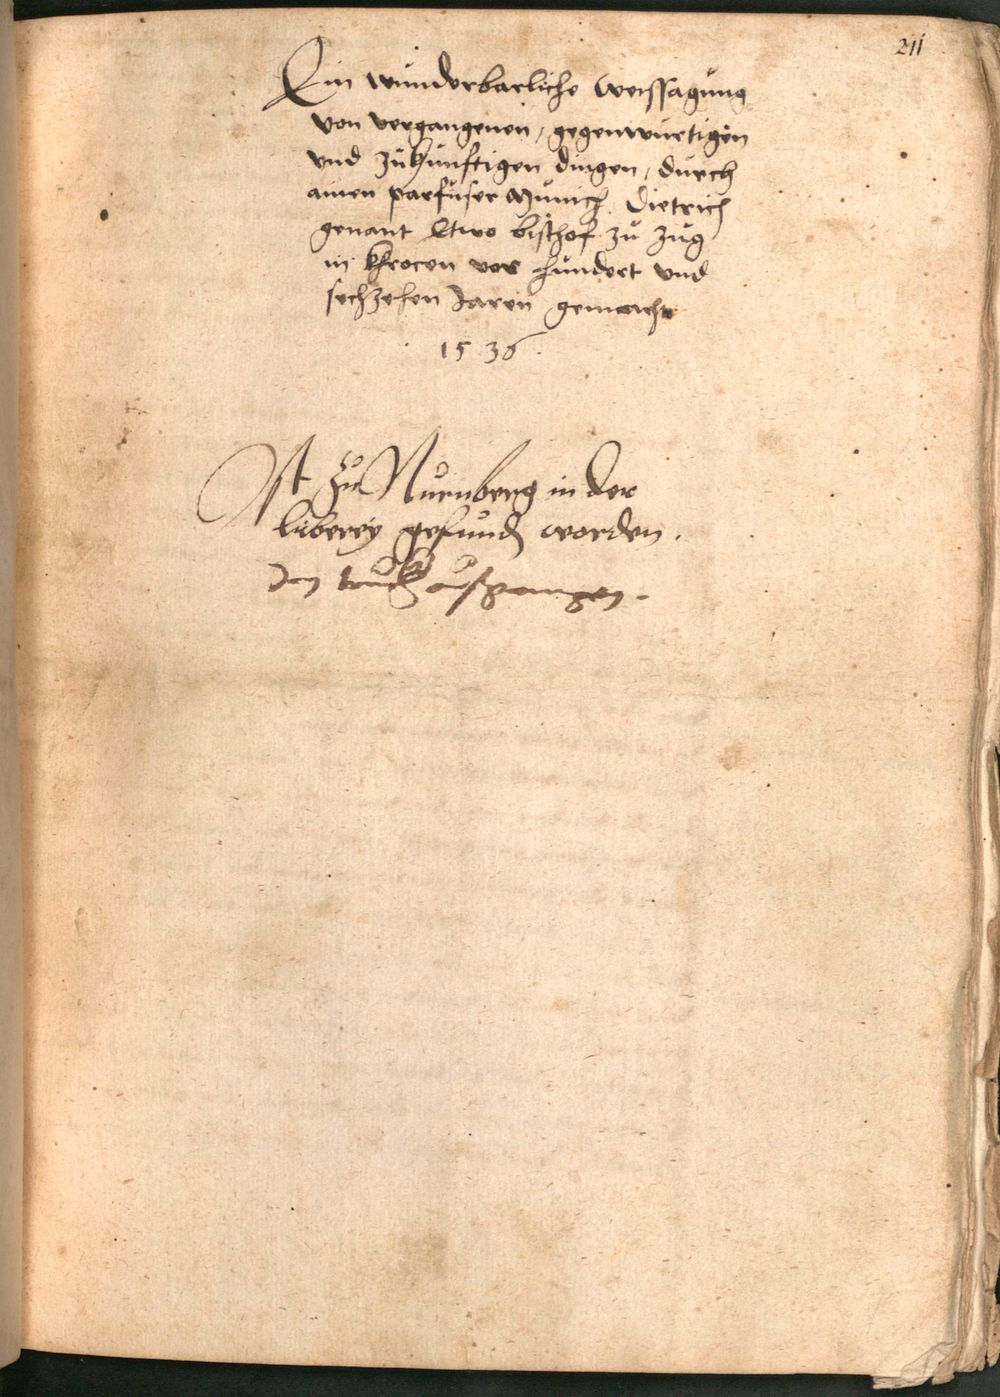 211
Ein wunderbarliche weissagung
von vergangenen, gegenwurtigen
und zukhunftigen dingen, durch
ainen parfuser Munich Dietrich
genant Etwo bischof zu Zug
in khrocen vor hundert und
sechzehen Jaren gemacht
1536.
Ist zu Nurnberg in der
liberey gefunden worden.
In truckh ausgangen.